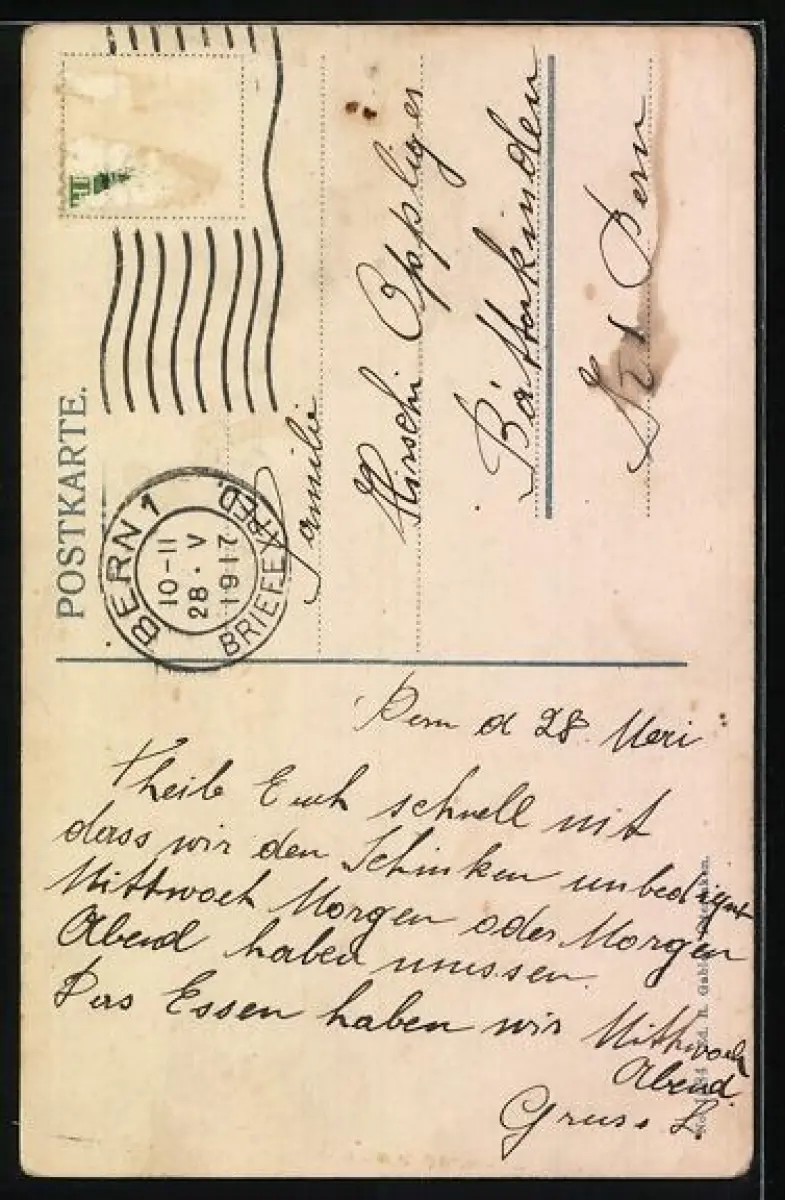 POSTKARTE.
BERN 1
10-11
28. V
1917
BRIEFEXPED.
Familie
Hirschi Oppliger
Bätterkinden
Kt Bern
Bern d 28. Mai
Theile Euch schnell mit
dass wir den Schinken unbedignt
Mittwoch Morgen oder Morgen
Abend haben mussen.
Das Essen haben wir Mittwoch
Abend.
Gruss L.